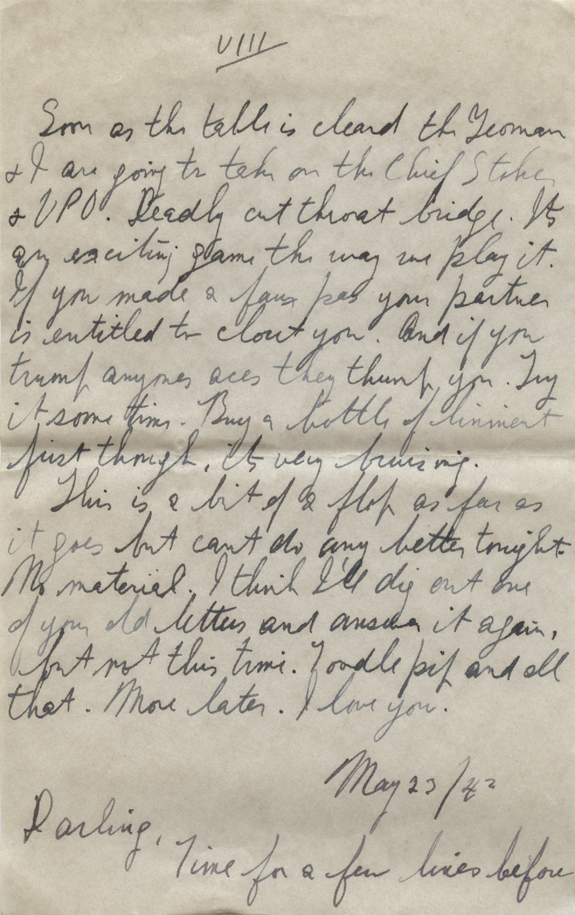 VIII
Soon as the table is cleard the Yeoman
& I are going to take on the Chief Stoker
& VPO. Deadly cut throat bridge. Its
an exciting game the way we play it.
If you made a faux pas your partner
is entitled to clout you. And if you
trump anyones aces they thump you. Try
it some time. Buy a bottle of liniment
first though, its very bruising.
This is a bit of a flop as far as
it goes but cant do any better tonight.
No material. I think I'll dig out one
of your old letters and answer it again,
but not this time. Toodle pip and all
that. More later. I love you.
May 23/42
Darling,
Time for a few lines before